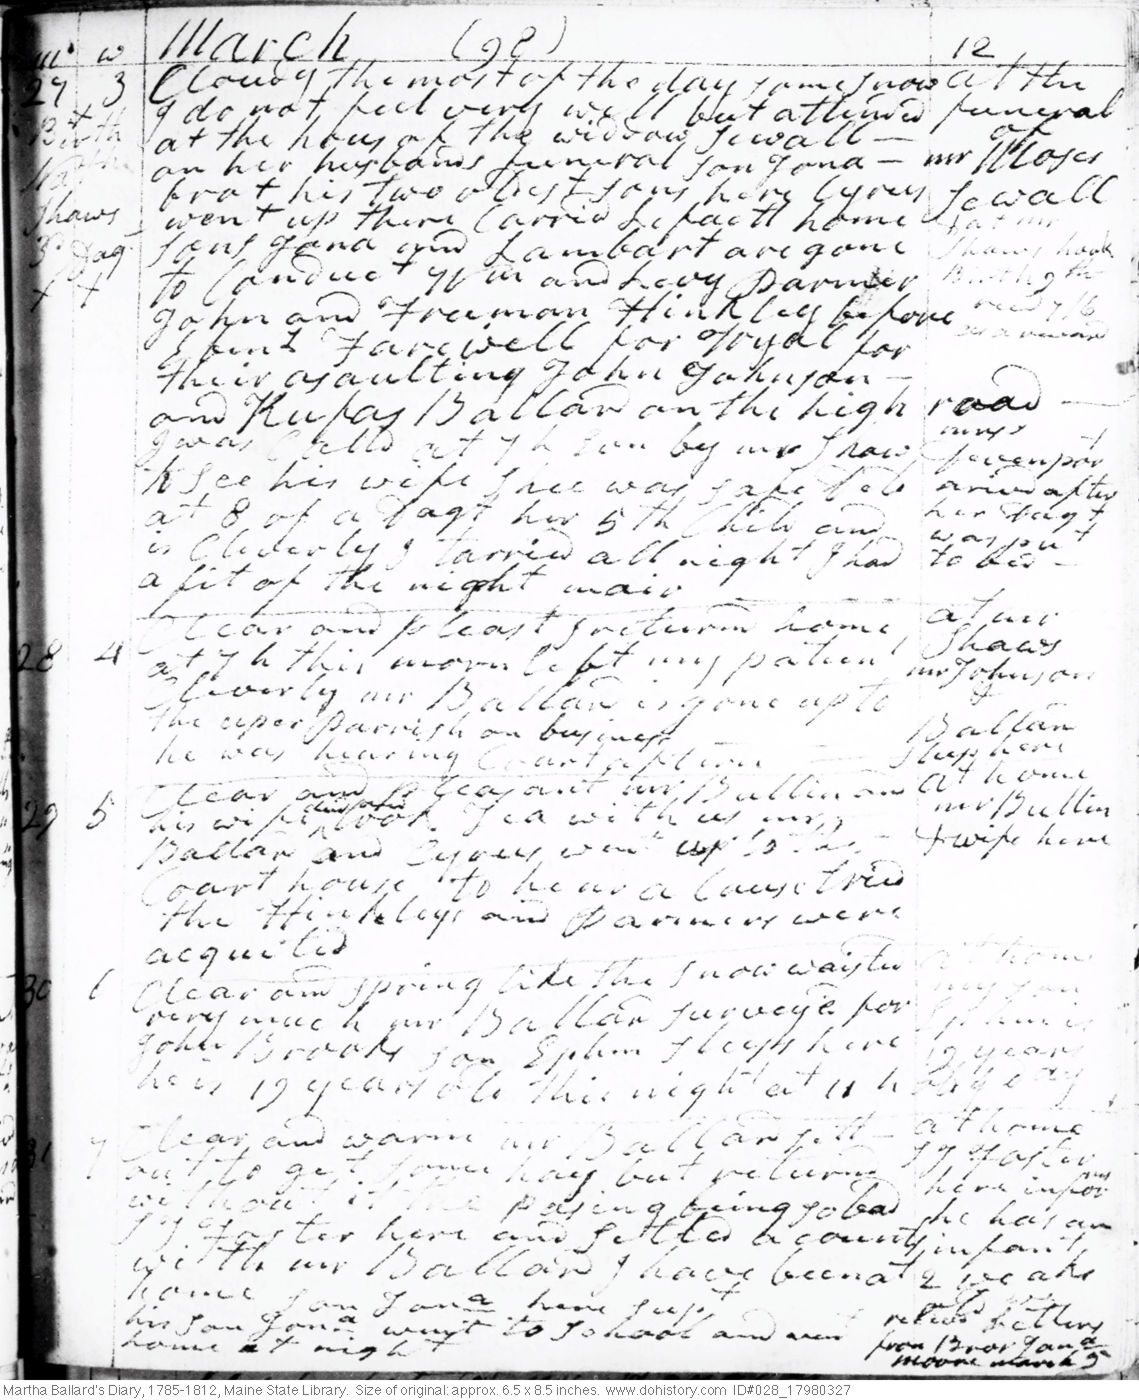 m w March (98) 12
27 3 Cloudy the most of the day some snow at the
I do not feel very well but attended funeral
Birth at the hous of the widdow Sewall — of
on her husbands funeral son Jona — mr Moses
Shaws brot his two oldest sons here Cyrus Sewall
went up there Carried home at mr
3d Dagt sons Jona and Lambart are gone Shaws
x x to Conduct Wm and Levy Parmer Birth 9th
John and Freeman Hinkley before
Farewell for Tryal for as a reward
their asaulting John Johnson —
and Rufas Ballard on the high road —
I was Calld at 7 h by mr Shaw mrss
to See his wife Shee was safe Deld Devenport
at 8 of a Dagt her 5th Child and arived after
her Dagt
is Cleverly I tarried all night I had was put
to bed —
a fit of the night mair
28 4 Clear and pleast I returnd home at mr
Shaws
at 7 h this morn left my patient mr Johnson
Cleverly mr Ballard is gone up to &
the uper Parrish on business Ballard
he was hearing Court aftern — sleep here
29 5 Clear and Pleasant mr Bullin and at home
his wife took Tea with us mr mr Bullin
Ballard and Cyrus went up to the — & wife here
Court house to hear a Cause tried
the Hinkleys and Parmers were
acquited
30 6 Clear and spring like the snow waisted at home
very much mr Ballard surveyd for my son
John Brooks son Ephm sleeps here Ephm is
19 years
he is 19 years old this night at 11 h old
31 7 Clear and warm mr Ballard sett — at home
out to get some hay but returnd Sy Foster
without it the pasing being so bad here
Sy Foster here and settled accounts he has an
with mr Ballard I have been at infant
2 weaks
home son Jona here supt old
his son Jona went to school and went receivd Letters
home at night from Bror Jona
Moore march 5
Martha Ballard's Diary, 1785-1812, Maine State Library. Size of original: approx. 6.5 x 8.5 inches. www.dohistory.com ID#028_17980327